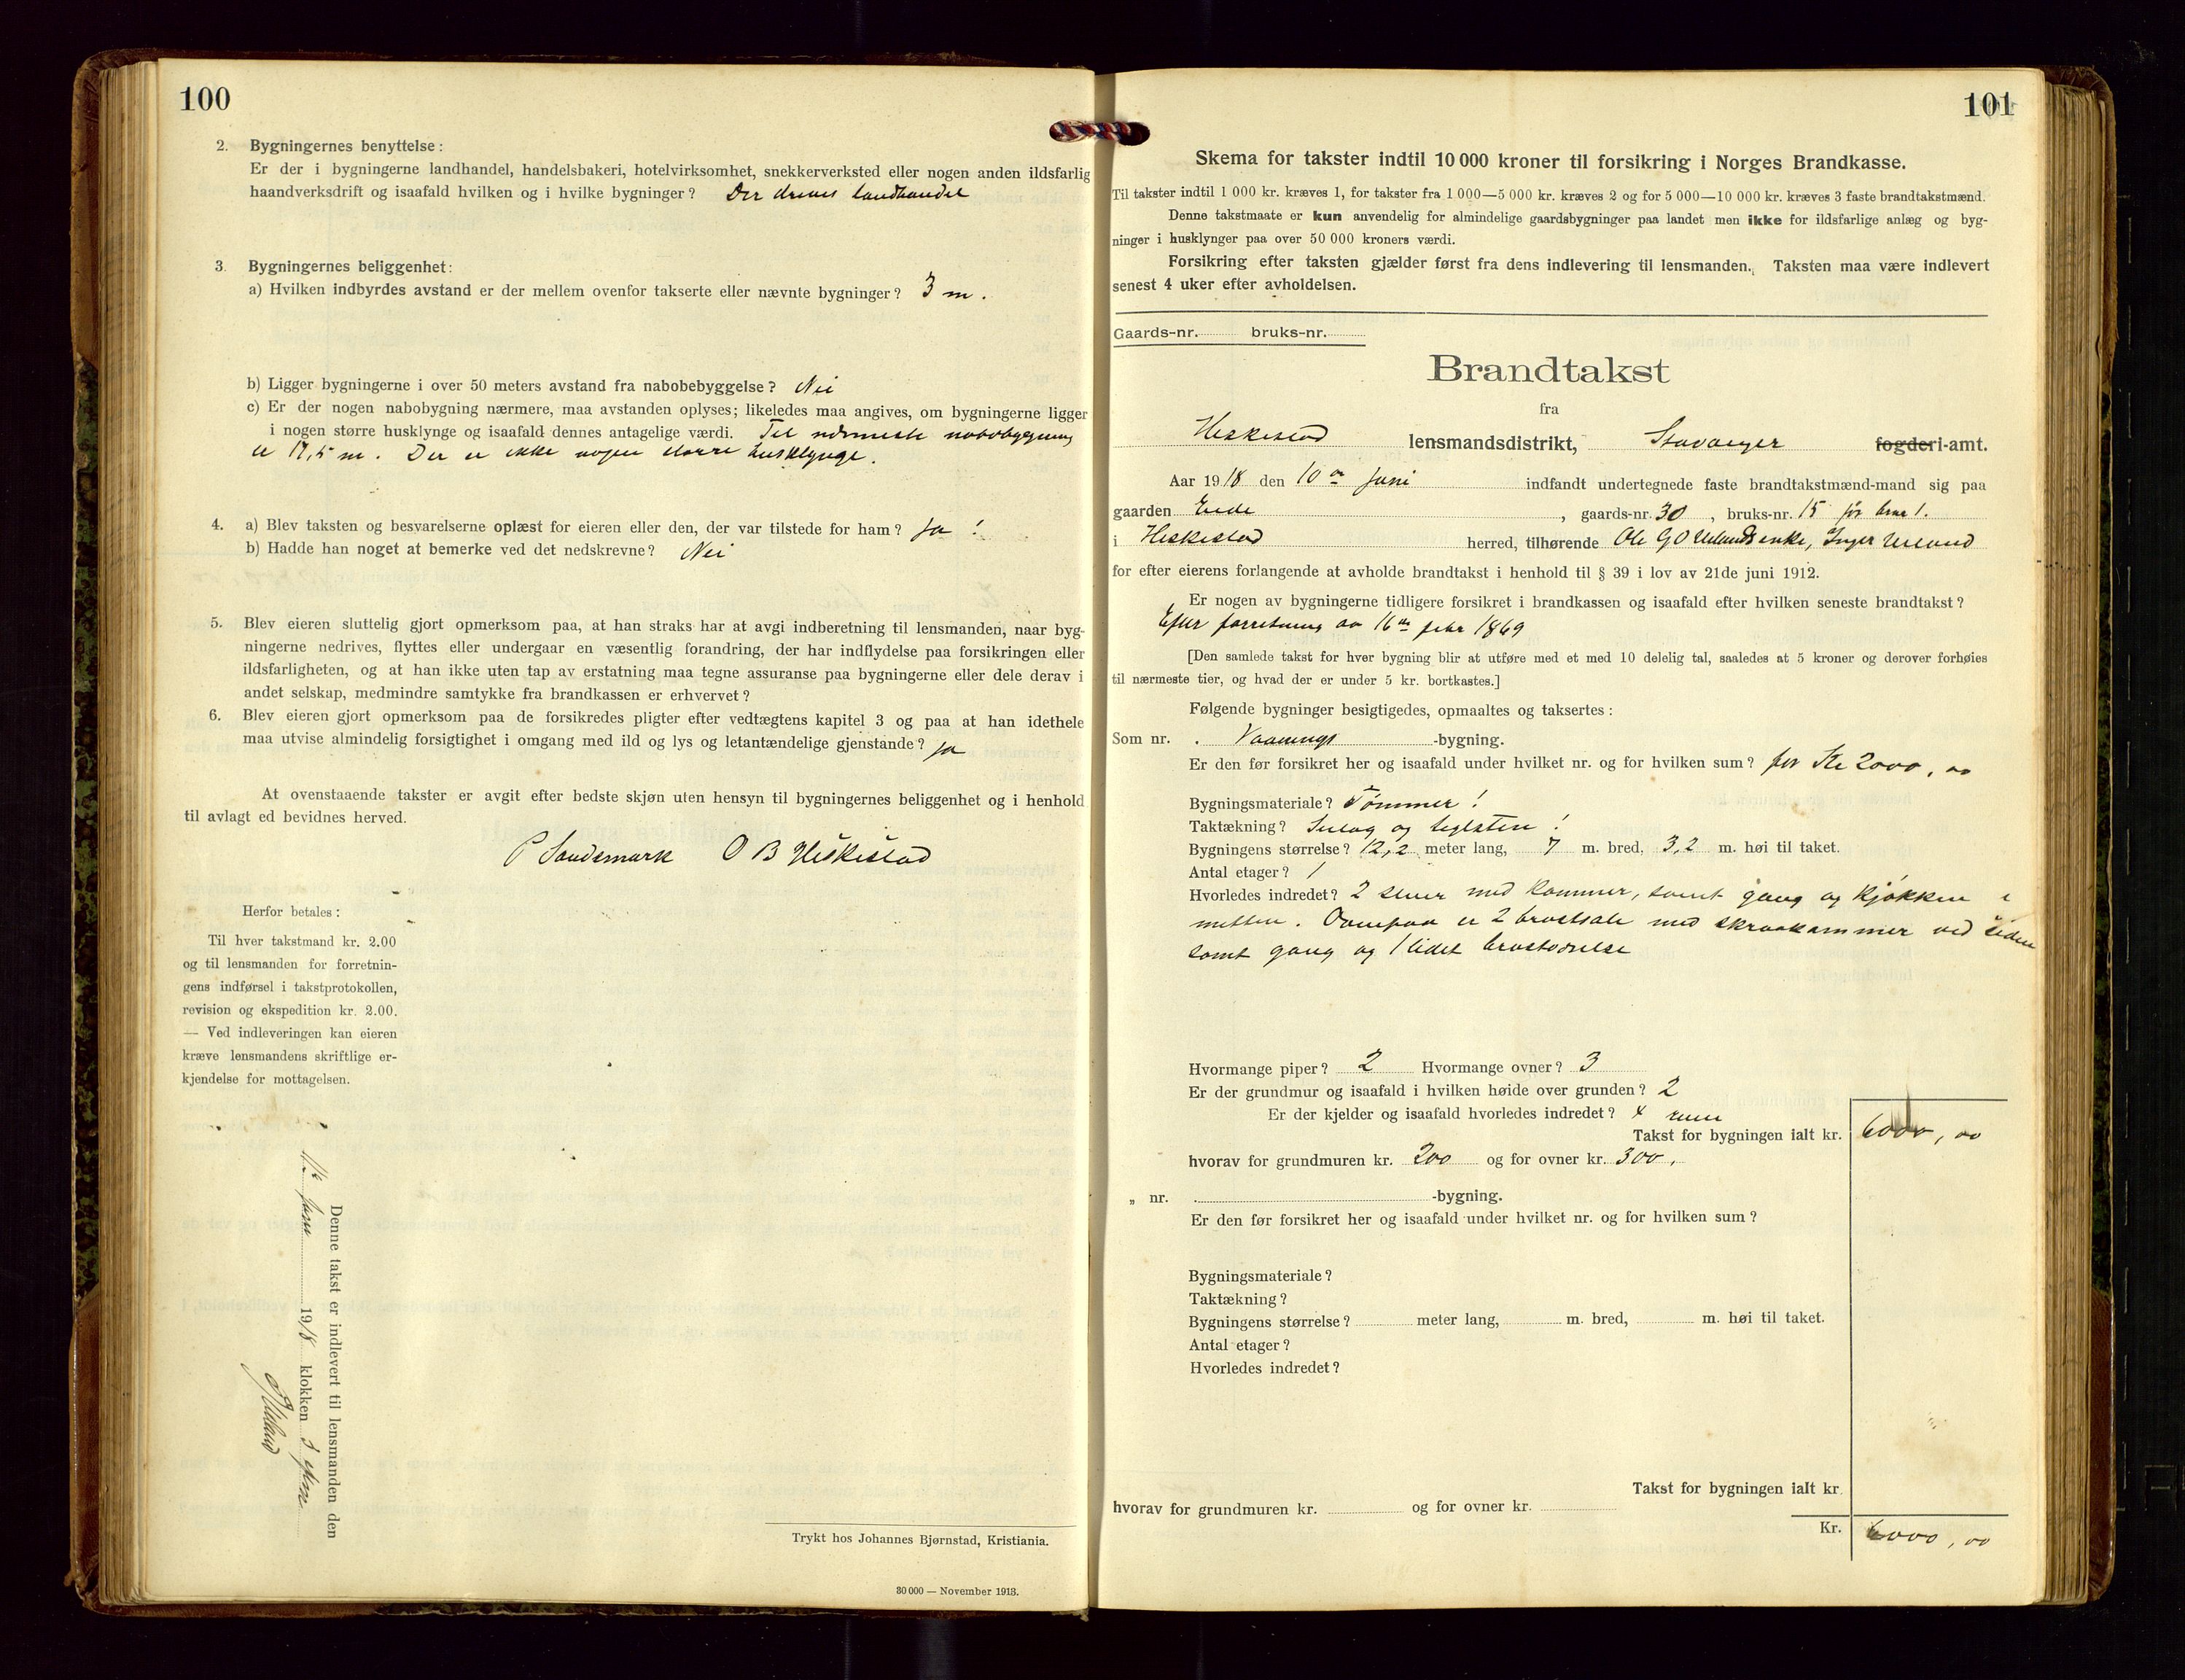 100
2. Bygningernes benyttelse:
Er der i bygningerne landhandel, handelsbakeri, hotelvirksomhet, snekkerverksted eller nogen anden ildsfarlig
haandverksdrift og isaafald hvilken og i hvilke bygninger? Der drives landhandel
3. Bygningernes beliggenhet:
a) Hvilken indbyrdes avstand er der mellem ovenfor takserte eller nævnte bygninger? 3 m.
b) Ligger bygningerne i over 50 meters avstand fra nabobebyggelse? Nei
c) Er der nogen nabobygning nærmere, maa avstanden oplyses; likeledes maa angives, om bygningerne ligger
i nogen større husklynge og isaafald dennes antagelige værdi. Til nærmeste nabobygning
er 17,5 m. Der er ikke nogen större husklynge.
4. a) Blev taksten og besvarelserne oplæst for eieren eller den, der var tilstede for ham? Ja!
b) Hadde han noget at bemerke ved det nedskrevne? Nei
5. Blev eieren sluttelig gjort opmerksom paa, at han straks har at avgi indberetning til lensmanden, naar byg-
ningerne nedrives, flyttes eller undergaar en væsentlig forandring, der har indflydelse paa forsikringen eller
ildsfarligheten, og at han ikke uten tap av erstatning maa tegne assuranse paa bygningerne eller dele derav i
andet selskap, medmindre samtykke fra brandkassen er erhvervet?
6. Blev eieren gjort opmerksom paa de forsikredes pligter efter vedtægtens kapitel 3 og paa at han idethele
maa utvise almindelig forsigtighet i omgang med ild og lys og letantændelige gjenstande? ja
At ovenstaaende takster er avgit efter bedste skjøn uten hensyn til bygningernes beliggenhet og i henhold
til avlagt ed bevidnes herved.
P Sandsmark O B Heskestad
Herfor betales:
Til hver takstmand kr. 2.00
og til lensmanden for forretnin-
gens indførsel i takstprotokollen,
revision og ekspedition kr. 2.00.
— Ved indleveringen kan eieren
kræve lensmandens skriftlige er-
kjendelse for mottagelsen.
Denne takst er indlevert til lensmanden den
juni 1918 klokken 3
Trykt hos Johannes Bjørnstad, Kristiania.
30 000 — November 1913.
101
Skema for takster indtil 10 000 kroner til forsikring i Norges Brandkasse.
Til takster indtil 1 000 kr. kræves 1, for takster fra 1 000—5 000 kr. kræves 2 og for 5 000—10 000 kr. kræves 3 faste brandtakstmænd.
Denne takstmaate er kun anvendelig for almindelige gaardsbygninger paa landet men ikke for ildsfarlige anlæg og byg-
ninger i husklynger paa over 50 000 kroners værdi.
Forsikring efter taksten gjælder først fra dens indlevering til lensmanden. Taksten maa være indlevert
senest 4 uker efter avholdelsen.
Gaards-nr. bruks-nr.
Brandtakst
fra
Heskestad lensmandsdistrikt, Stavanger fogderi-amt.
Aar 1918 den 10de Juni indfandt undertegnede faste brandtakstmænd-mand sig paa
gaarden Eide, gaards-nr. 30, bruks-nr. 15 før 1.
i Heskestad herred, tilhørende Ole G O Uelands enke, Inger Ueland
for efter eierens forlangende at avholde brandtakst i henhold til § 39 i lov av 21de juni 1912.
Er nogen av bygningerne tidligere forsikret i brandkassen og isaafald efter hvilken seneste brandtakst?
Efter forretning av 16de febr 1869
[Den samlede takst for hver bygning blir at utføre med et med 10 delelig tal, saaledes at 5 kroner og derover forhøies
til nærmeste tier, og hvad der er under 5 kr. bortkastes.]
Følgende bygninger besigtigedes, opmaaltes og taksertes:
Som nr. . Vaanings-bygning.
Er den før forsikret her og isaafald under hvilket nr. og for hvilken sum? for Kr 2000,00
Bygningsmateriale? Tømmer!
Taktækning? og teglsten!
Bygningens størrelse? 12,2 meter lang, 7 m. bred, 3,2 m. høi til taket.
Antal etager? 1
Hvorledes indredet? 2 stuer med kammer, samt gang og kjøkken i
mitten. Ovenpaa er 2 brostsale med skraakammer ved siden
samt gang og 1 lidet
Hvormange piper? 2 Hvormange ovner? 3
Er der grundmur og isaafald i hvilken høide over grunden? 2
Er der kjelder og isaafald hvorledes indredet? 4 rum
Takst for bygningen ialt kr. 6000,00
hvorav for grundmuren kr. 200 og for ovner kr. 300,
„ nr. -bygning.
Er den før forsikret her og isaafald under hvilket nr. og for hvilken sum?
Bygningsmateriale?
Taktækning?
Bygningens størrelse? meter lang, m. bred, m. høi til taket.
Antal etager?
Hvorledes indredet?
Takst for bygningen ialt kr.
hvorav for grundmuren kr. og for ovner kr.
Kr. 6000,00